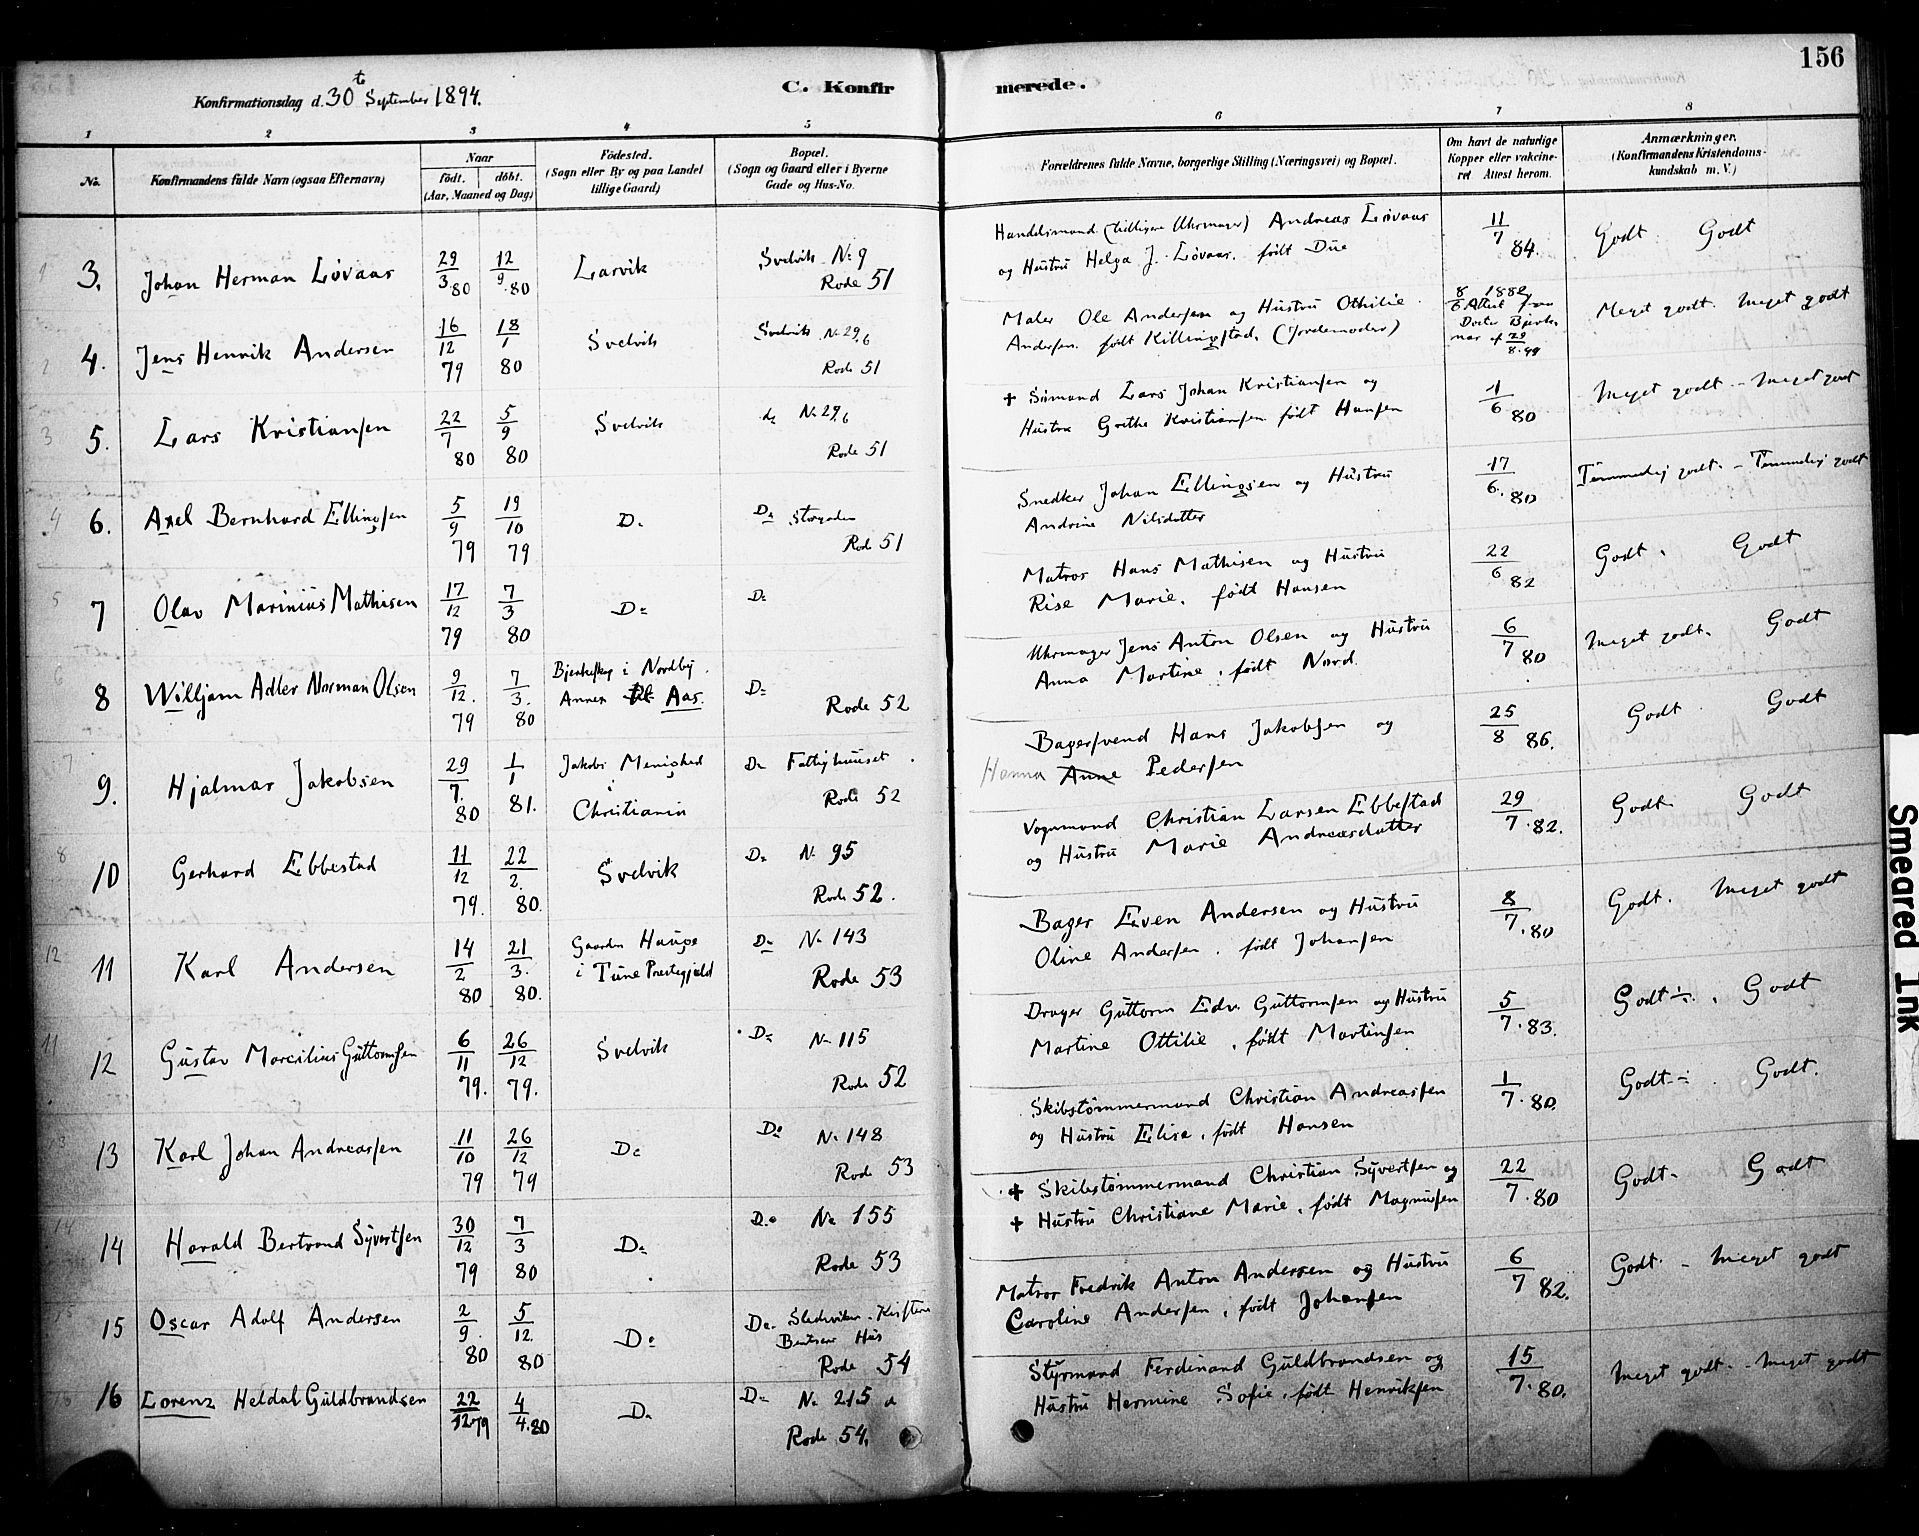 156
Konfirmationsdag d. 30t September 1894.
C. Konfirmerede.
1 2 3 4 5 6 7 8
No.
Konfirmandens fulde Navn (ogsaa Efternavn)
Naar
født. døbt.
(Aar, Maaned og Dag)
Fødested.
(Sogn eller By og paa Landet
tillige Gaard)
Bopæl.
(Sogn og Gaard eller i Byerne
Gade og Hus-No.
Forældrenes fulde Navne, borgerlige Stilling (Næringsvei) og Bopæl.
Om havt de naturlige
Kopper eller vakcine-
ret Attest herom.
Anmærkninger.
(Konfirmandens Kristendoms-
kundskab m. V.)
3. Johan Herman Løvaas 29/3 80 12/9 80 Larvik Svelvik No 9
Rode 51
Handelsmand (tidligere Uhrmager) Andreas Løvaas
og Hustru Helga J. Løvaas. født Due
11/7 84. Godt. Godt
4. Jens Henrik Andersen 16/12 79 18/1 80 Svelvik Svelvik No 296
Rode 51
Maler Ole Andersen og Hustru Othilie
Andersen. født Killingstad, (Jordemoder)
8/6 1882 Attest fra
Meget godt. Meget godt
5. Lars Kristiansen 22/7 80 5/9 80 Svelvik do No 296
Rode 51
+ Sømand Lars Johan Kristiansen og
Hustru Grethe Kristiansen født Hansen
1/6 80 Meget godt - Meget godt
6. Axel Bernhard Ellingsen 5/9 79 19/10 79 Do Do Storgaden
Rode 51
Snedker Johan Ellingsen og Hustru
Andrine Nilsdatter
17/6. 80 Temmelig godt. - Temmelig godt
7 Olav Marinius Mathisen 17/12 79 7/3 80 Do Do
Matros Hans Mathisen og Hustru
Rise Marie. født Hansen
22/6 82 Godt. Godt
8 Willjam Adler Norman Olsen 9/12. 79 7/3. 80 i Nordby
Annex til Aas. Do Rode 52
Uhrmager Jens Anton Olsen og Hustru
Anna Martine, født Nord.
6/7 80 Meget godt. Godt
9. Hjalmar Jakobsen 29/7. 80 1/1 81. Jakobs Menighed
i
Christiania
Do Fattighuuset.
Rode 52
Bagersvend Hans Jakobsen og
Hanna Anne Pedersen
25/8 86. Godt. Godt
10 Gerhard Ebbestad 11/12 79. 22/2. 80. Svelvik Do No 95
Rode 52.
Vognmand Christian Larsen Ebbestad
og Hustru Marie Andreasdatter
29/7. 82. Godt. Godt
11 Karl Andersen 14/2 80 21/3. 80. Gaarden Hauge
i Tune Præstegjeld
Do No 143
Rode 53
Bager Even Andersen og Hustru
Oline Andersen. født Johansen
8/7. 80 Godt. Meget godt
12 Gustav Marcilius Guttormsen 6/11 79. 26/12 79. Svelvik Do No 115
Rode 52
Drager Guttorm Edv. Guttormsen og Hustru
Martine Ottilie, født Martinsen
5/7. 83. Godt ÷. Godt
13 Karl Johan Andreassen 11/10 79 26/12 79 Do Do No 148
Rode 53
Skibstømmermand Christian Andreassen
og Hustru Elise, født Hansen
1/7. 80. Godt ÷. Godt.
14 Harald Bertrand Syvertsen 30/12 79 7/3 80 Do Do No 155
Rode 53
+ Skibstømmermand Christian Syvertsen og
+ Hustru Christiane Marie, født Magnussen
22/7. 80 Godt. Godt
15 Oscar Adolf Andersen 2/9. 80 5/12. 80 Do Do
Hus
Rode 54
Matros Fredrik Anton Andersen og Hustru
Caroline Andersen, født Johansen
6/7 82. Godt. - Meget godt
16 Lorenz Heldal Guldbrandsen 22/12 79 4/4. 80 Do Do No 215 a
Rode 54.
Styrmand Ferdinand Guldbrandsen og
Hustru Hermine Sofie, født Henriksen
15/7. 80. Meget godt. - Meget godt
Smeared Ink